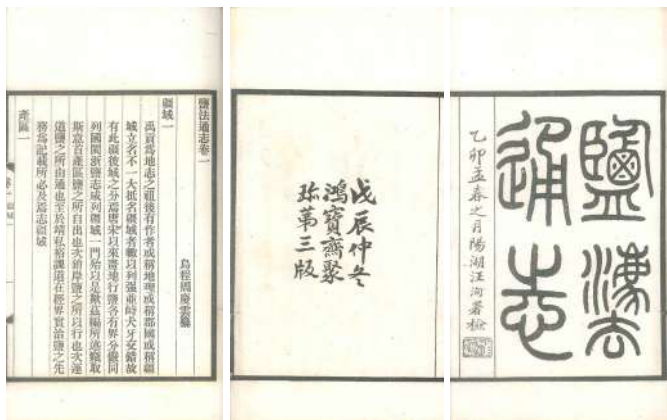 鹽法
通志
乙卯孟春之月陽湖汪洵署檢
戊辰仲冬
鴻寶齋聚
珎第三版
鹽法通志卷一
烏程周慶雲纂
疆域一
禹貢爲地志之祖後有作者或稱地理或稱郡國或稱疆
域立名不一大抵名疆域者輒以列强並峙犬牙交錯故
有此疆彼域之分焉唐宋以來鬻地行鹽各有界分嚴同
列國閩浙鹽志咸列疆域一門殆以是歟茲編所述竊取
斯意首產區鹽之所自出也次銷岸鹽之所以行也次運
道鹽之所由通也至於靖私裕課道在經界實治鹽之先
務爲記載所必及焉志疆域
產區一